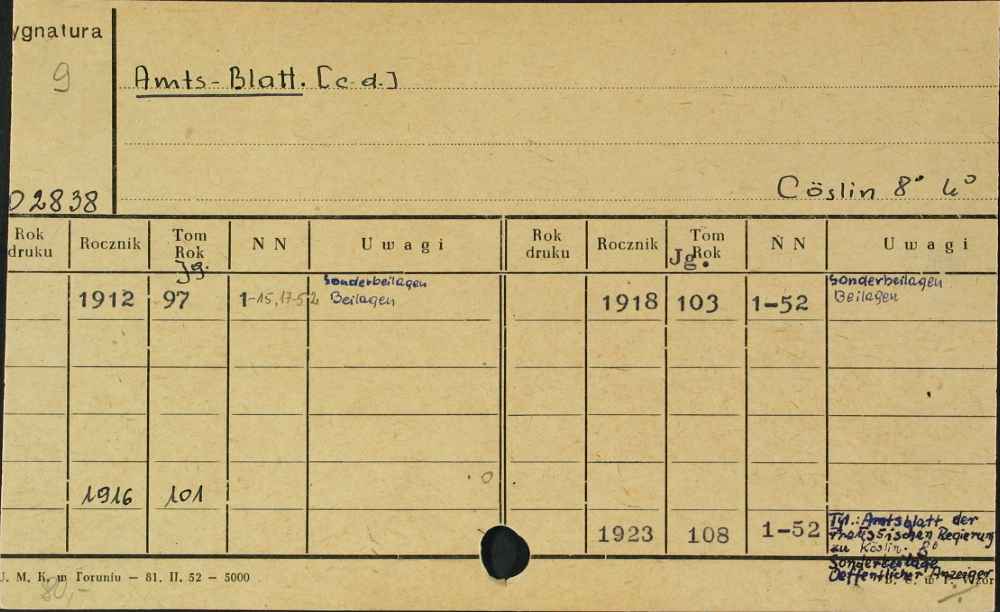 ygnatura
9
Amts-Blatt. [c.d.]
02838
Cöslin 8° 4°
Rok druku Rocznik Tom Rok N N Uwagi Rok druku Rocznik Tom Rok N N Uwagi
Jg. Jg.
Sonderbeilagen Sonderbeilagen
1912 97 1-15,17-52 Beilagen 1918 103 1-52 Beilagen
1916 101
1923 108 1-52 Tyt.: Amtsblatt der
Preussischen Regierung
zu Köslin. 8°
Sonderbeilage
Oeffentlicher Anzeiger
U. M. K. w Toruniu — 81. II. 52 — 5000
80,-